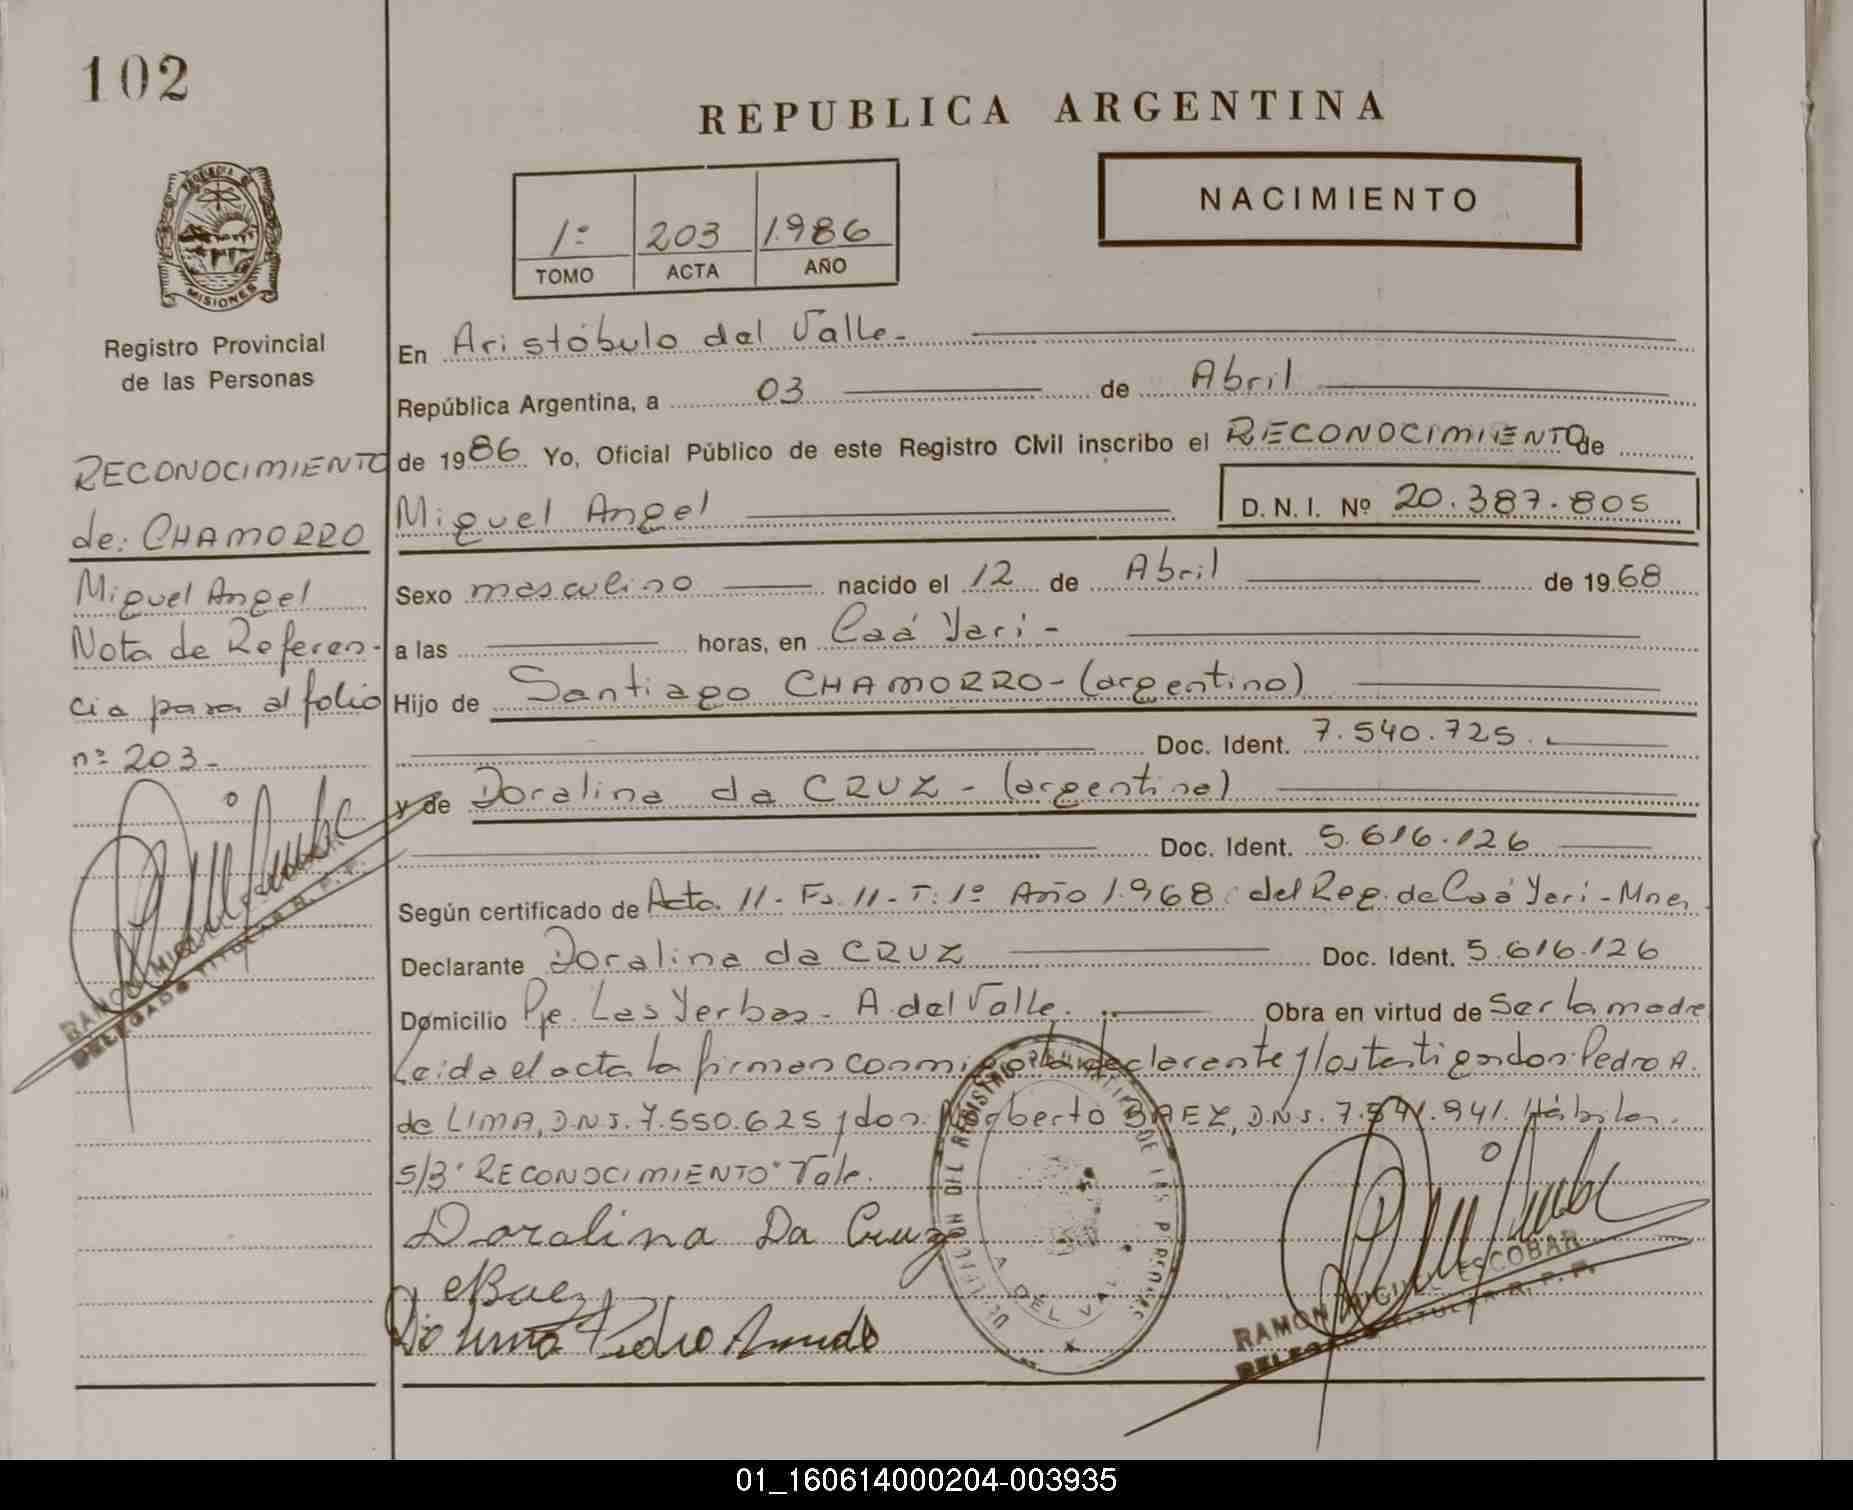 102
REPUBLICA ARGENTINA
PROVINCIA DE
MISIONES
1º 203 1986
TOMO ACTA AÑO
NACIMIENTO
Registro Provincial
de las Personas
RECONOCIMIENTO
de: CHAMORRO
Miguel Angel
Nota de Referen-
cia pasa al folio
nº 203-
RAMON MIGUEL ESCOBAR
DELEGADO TITULAR R. P. P.
En Aristóbulo del Valle.-
República Argentina, a 03 de Abril
de 1986 Yo, Oficial Público de este Registro Civil inscribo el RECONOCIMIENTO de
Miguel Angel D. N. I. Nº 20.387.805
Sexo masculino nacido el 12 de Abril de 1968
a las horas, en Caá Yari -
Hijo de Santiago CHAMORRO - (argentino)
Doc. Ident. 7.540.725.
y de Doralina da CRUZ - (argentina)
Doc. Ident. 5.616.126
Según certificado de Acta 11 - Fº 11 - T: 1º Año 1.968 del Reg. de Caá Yari - Mnes.
Declarante Doralina da CRUZ Doc. Ident. 5.616.126
Domicilio Pje. Las Yerbas - A. del Valle. Obra en virtud de Ser la madre
Leida el acta la firman conmigo la declarante y los testigos don: Pedro A.
de LIMA, D.N.I. 7.550.625 y don: BAEZ, D.N.I. 7.541.941. Hábiles.
S/B "RECONOCIMIENTO" Vale.
Doralina Da Cruz
eBaez
De Lima Pedro
DELEGACION DEL REGISTRO PROVINCIAL DE LAS PERSONAS
A. DEL VALLE
RAMON MIGUEL ESCOBAR
DELEGADO TITULAR R. P. P.
01_160614000204-003935